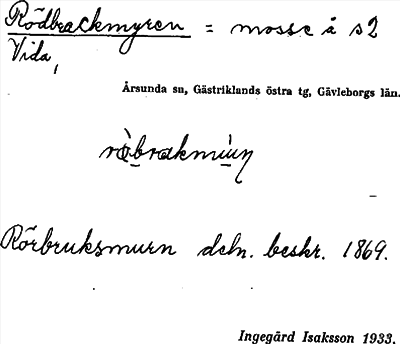 Rödbrackmyren = mosse å s2
Vida,
Årsunda sn, Gästriklands östra tg, Gävleborgs län.
Rörbruksmurn deln. beskr. 1869.
Ingegärd Isaksson 1933.